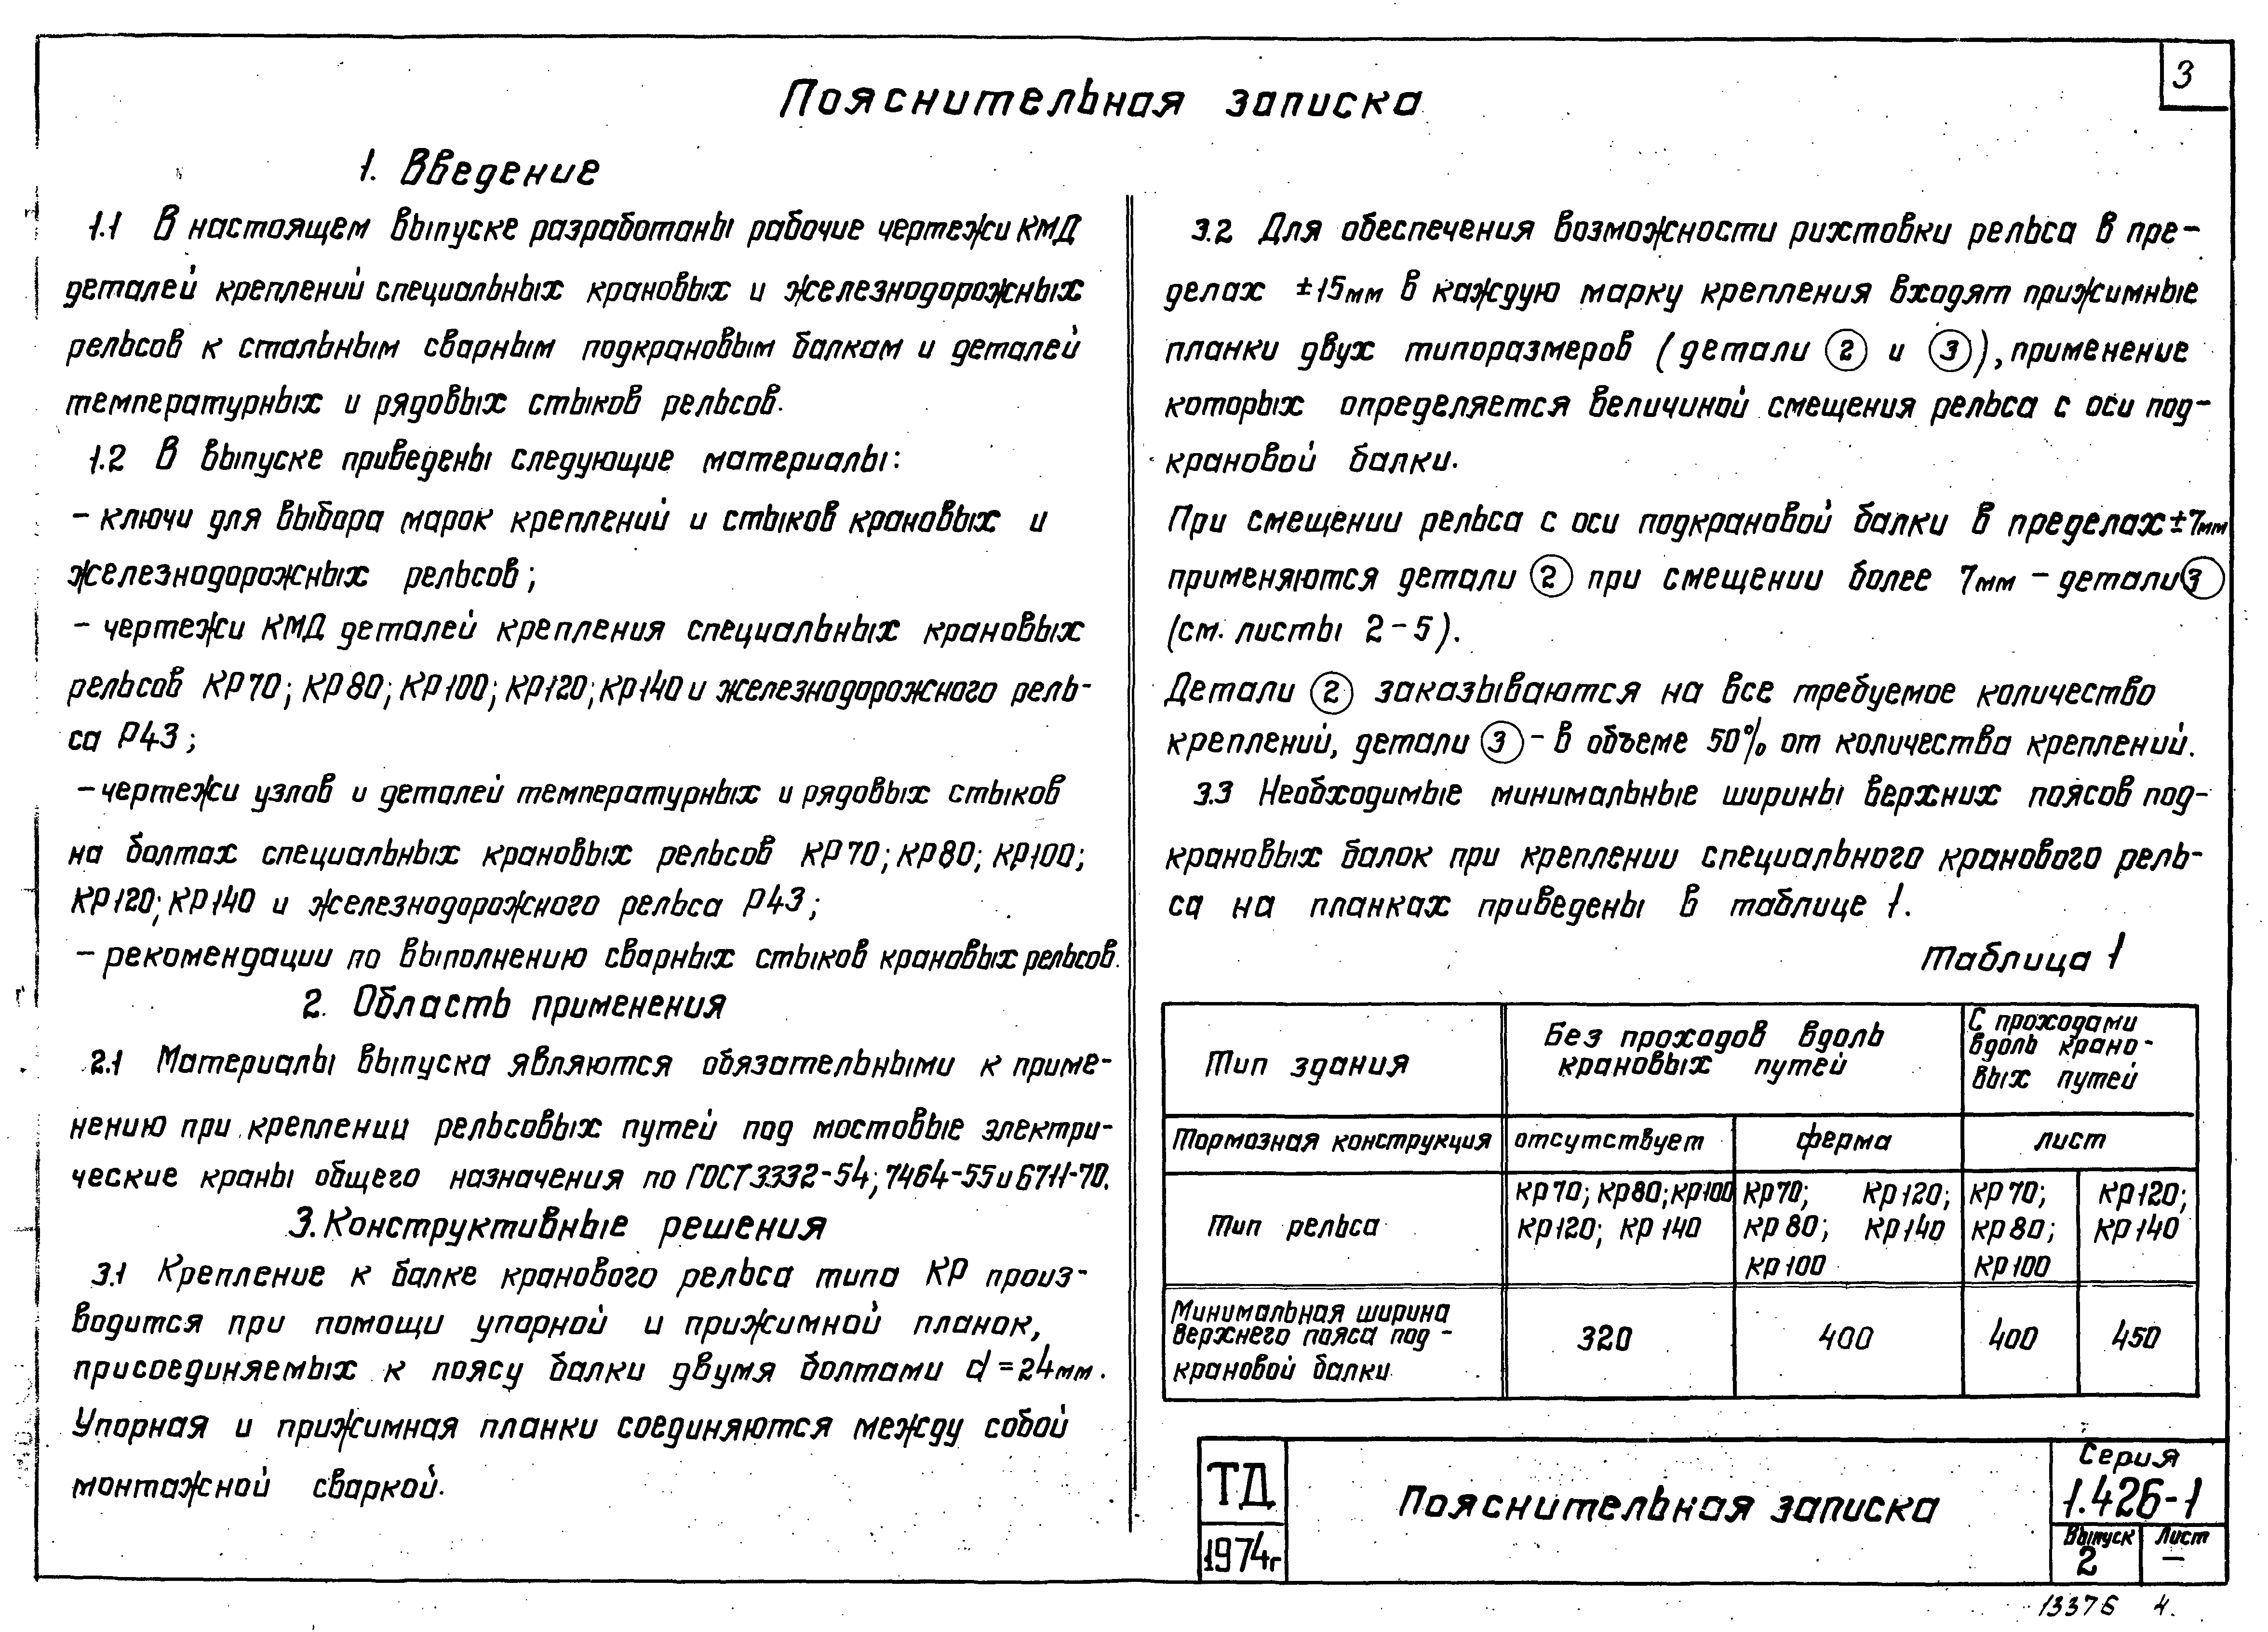 3
Пояснительная записка
1. Введение
1.1 В настоящем выпуске разработаны рабочие чертежи КМД
деталей креплений специальных крановых и железнодорожных
рельсов к стальным сварным подкрановым балкам и деталей
температурных и рядовых стыков рельсов.
1.2 В выпуске приведены следующие материалы:
- ключи для выбора марок креплений и стыков крановых и
железнодорожных рельсов;
- чертежи КМД деталей крепления специальных крановых
рельсов КР70; КР80; КР100; КР120; КР140 и железнодорожного рель-
са Р43;
- чертежи узлов и деталей температурных и рядовых стыков
на болтах специальных крановых рельсов КР70; КР80; КР100;
КР120; КР140 и железнодорожного рельса Р43;
- рекомендации по выполнению сварных стыков крановых рельсов.
2. Область применения
2.1 Материалы выпуска являются обязательными к приме-
нению при креплении рельсовых путей под мостовые электри-
ческие краны общего назначения по ГОСТ 3332-54; 7464-55 и 6711-70.
3. Конструктивные решения
3.1 Крепление к балке кранового рельса типа КР произ-
водится при помощи упорной и прижимной планок,
присоединяемых к поясу балки двумя болтами d=24мм.
Упорная и прижимная планки соединяются между собой
монтажной сваркой.
3.2 Для обеспечения возможности рихтовки рельса в пре-
делах ±15мм в каждую марку крепления входят прижимные
планки двух типоразмеров (детали 2 и 3), применение
которых определяется величиной смещения рельса с оси под-
крановой балки.
При смещении рельса с оси подкрановой балки в пределах ±7мм
применяются детали 2 при смещении более 7мм - детали 3
(см. листы 2-5).
Детали 2 заказываются на все требуемое количество
креплений, детали 3 - в объеме 50% от количества креплений.
3.3 Необходимые минимальные ширины верхних поясов под-
крановых балок при креплении специального кранового рель-
са на планках приведены в таблице 1.
Таблица 1
Тип здания
Без проходов вдоль
крановых путей
С проходами
вдоль крано-
вых путей
Тормозная конструкция
отсутствует
ферма
лист
Тип рельса
КР70; КР80; КР100
КР120; КР140
КР70; КР120;
КР80; КР140
КР100
КР70;
КР80;
КР100
КР120;
КР140
Минимальная ширина
верхнего пояса под-
крановой балки
320
400
400
450
ТД
1974г
Пояснительная записка
Серия
1.426-1
Выпуск
2
Лист
—
13376 4.